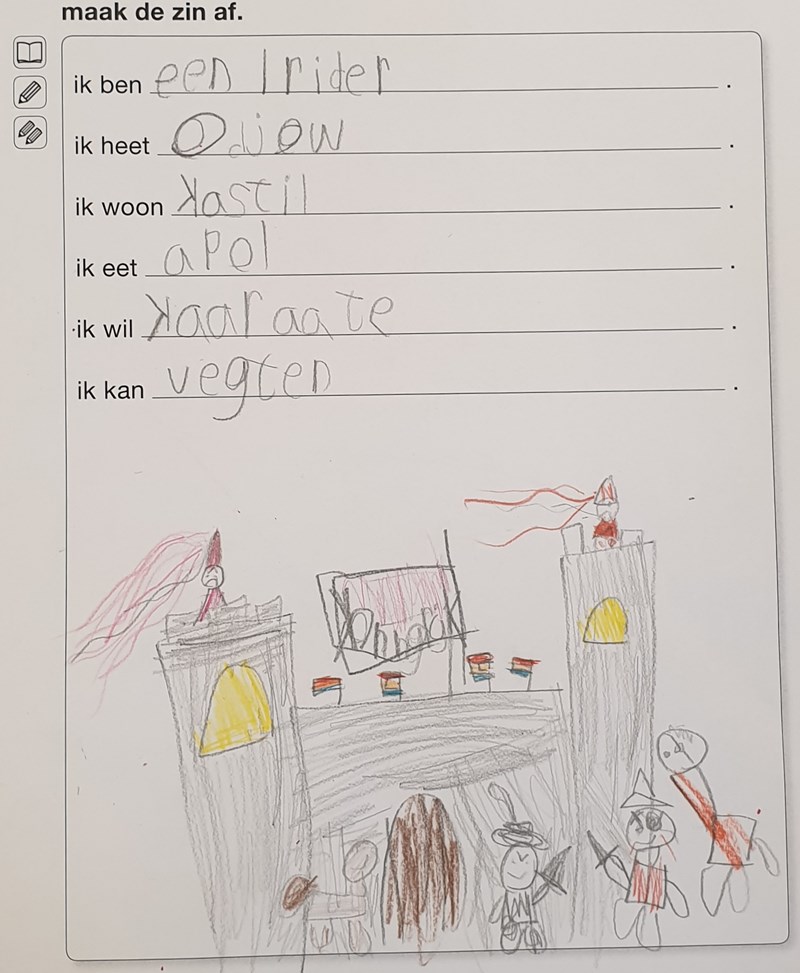 maak de zin af.
ik ben een lrider .
ik heet Odjow .
ik woon kastil .
ik eet apol .
ik wil kaaraate .
ik kan vegten .